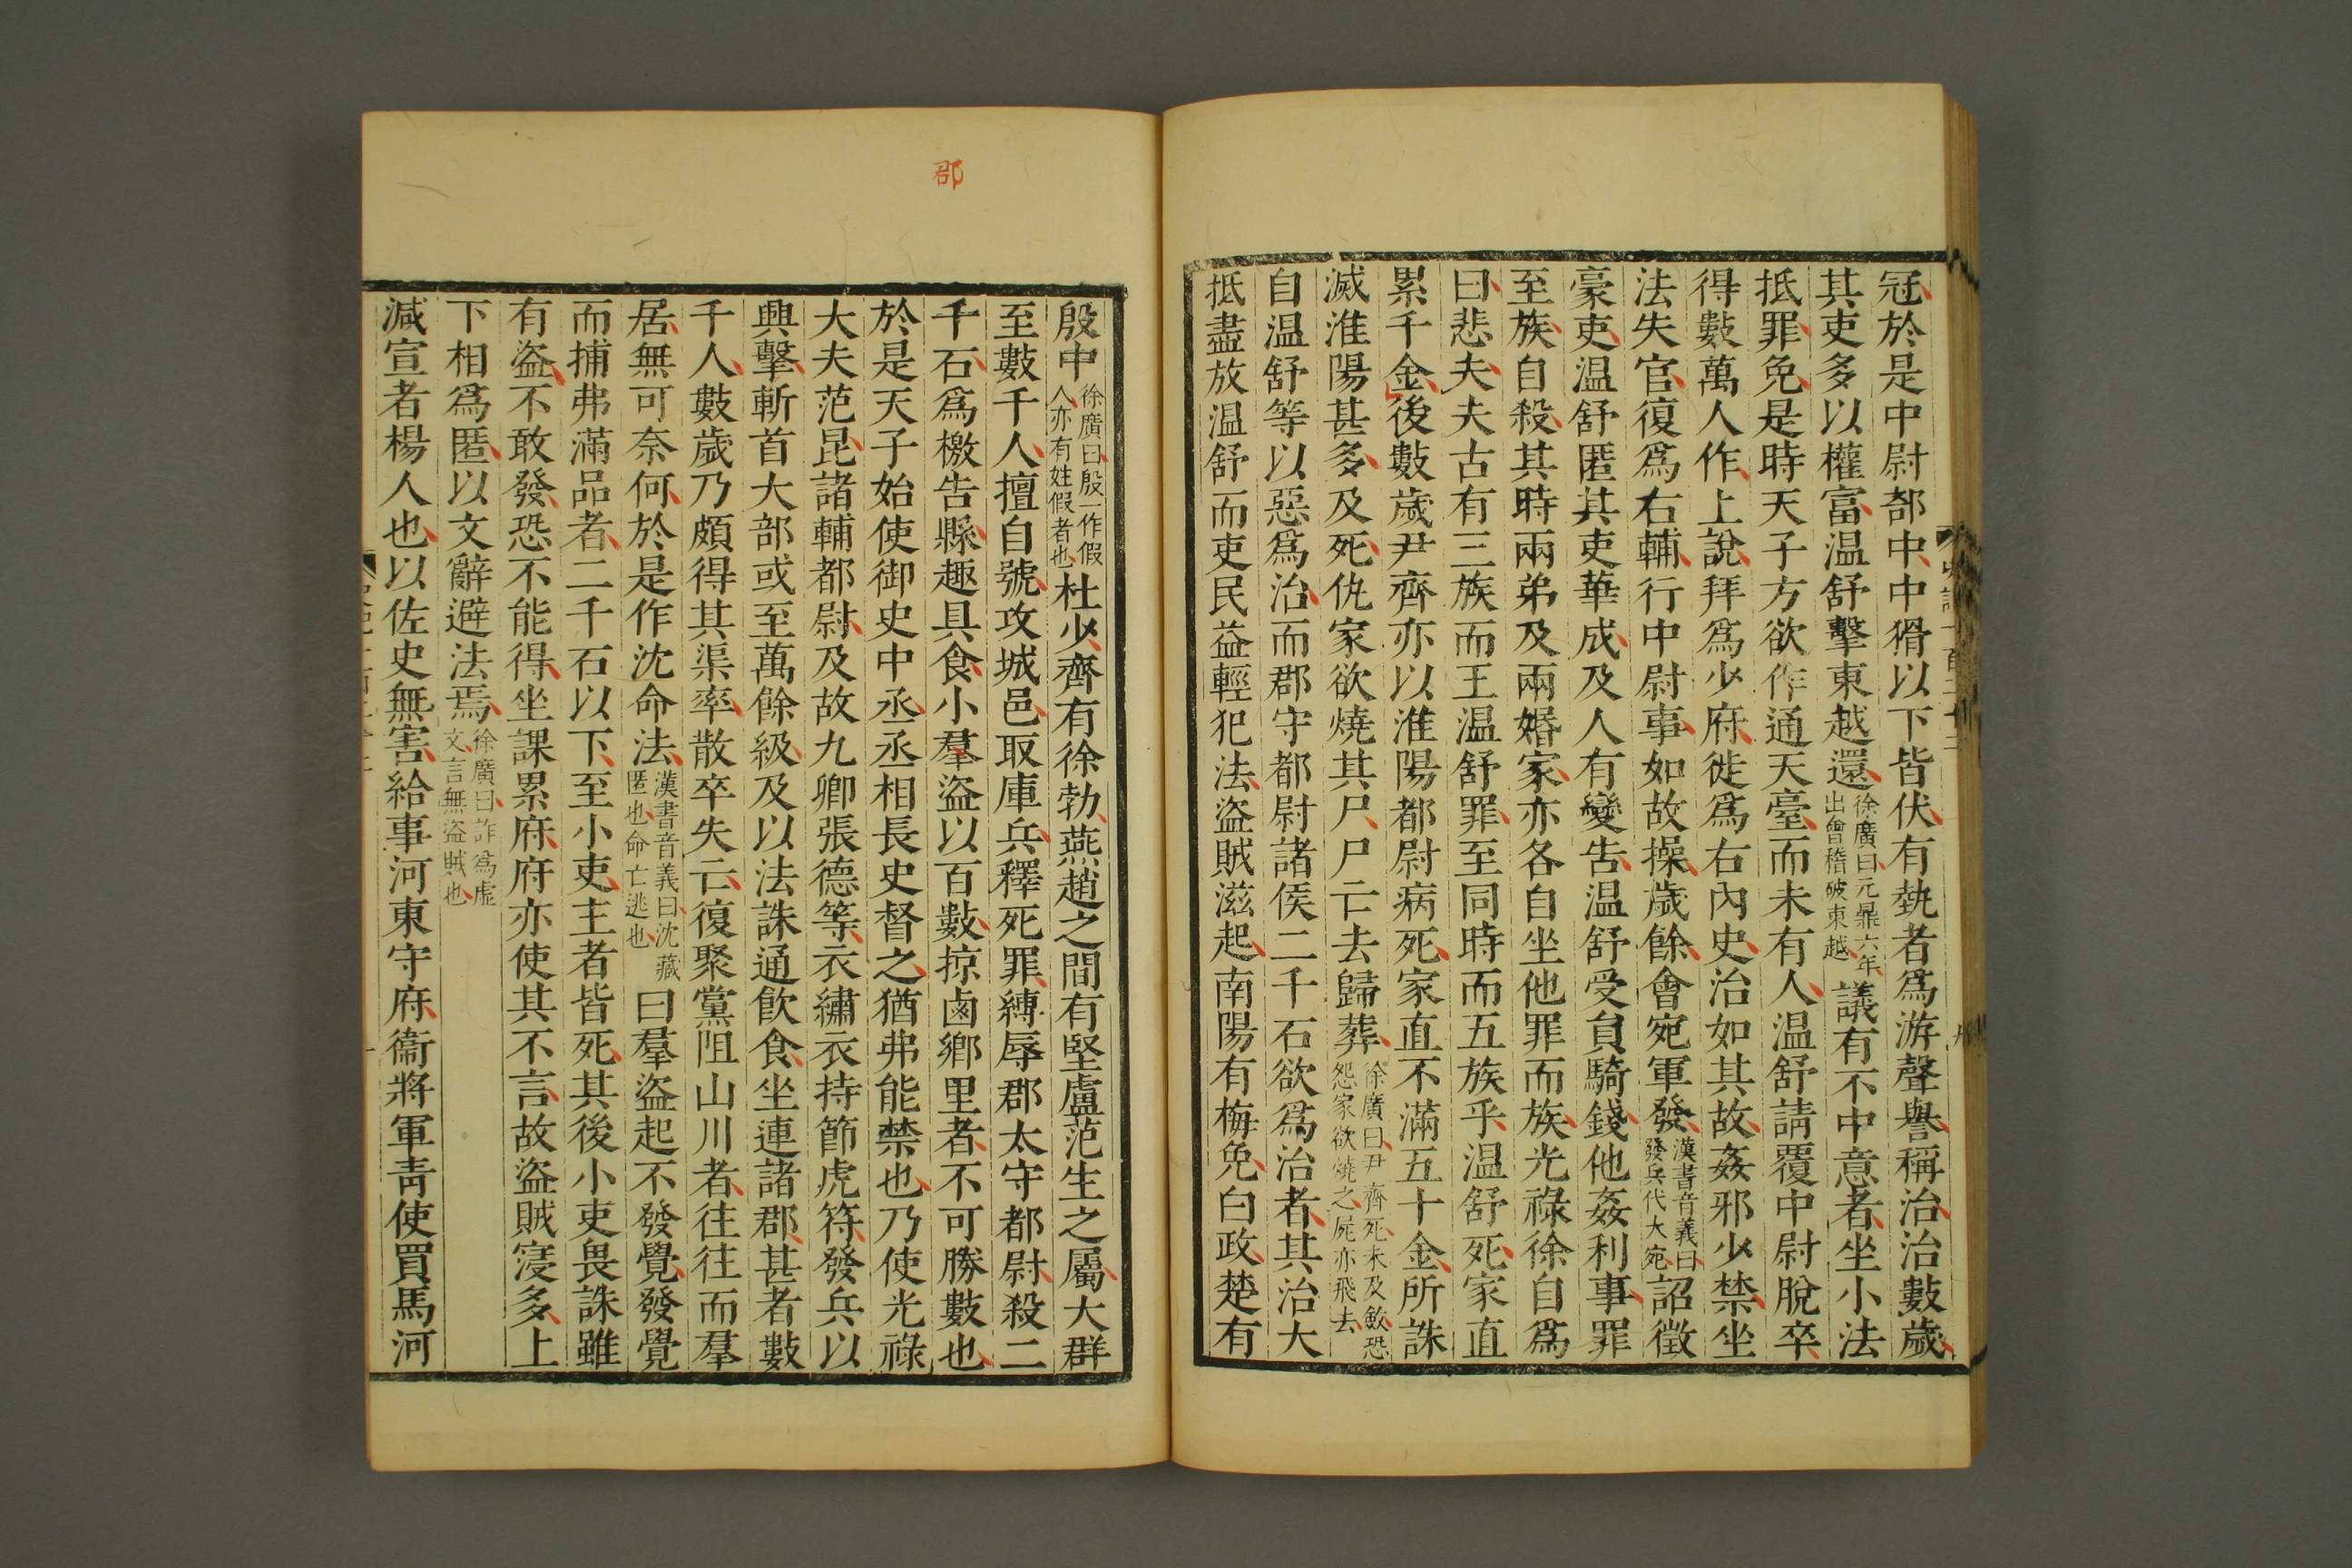 冠於是中尉部中中猾以下皆伏有埶者爲游聲譽稱治治數歲
其吏多以權富温舒擊東越還徐廣曰元鼎六年出會稽破東越議有不中意者坐小法
抵罪免是時天子方欲作通天臺而未有人温舒請覆中尉脫卒
得數萬人作上說拜爲少府徙爲右內史治如其故姦邪少禁坐
法失官復爲右輔行中尉事如故操歲餘會宛軍發漢書音義曰發兵代大宛詔徵
豪吏温舒匿其吏華成及人有變告温舒受負騎錢他姦利事罪
至族自殺其時兩弟及兩婚家亦各自坐他罪而族光祿徐自爲
曰悲夫夫古有三族而王温舒罪至同時而五族乎温舒死家直
累千金後數歲尹齊亦以淮陽都尉病死家直不滿五十金所誅
滅淮陽甚多及死仇家欲燒其尸尸亡去歸葬徐廣曰尹齊死未及斂恐怨家欲燒之屍亦飛去
自温舒等以惡爲治而郡守都尉諸侯二千石欲爲治者其治大
抵盡放温舒而吏民益輕犯法盜賊滋起南陽有梅免白政楚有
郡
殷中徐廣曰殷一作假人亦有姓假者也杜少齊有徐勃燕趙之間有堅盧范生之屬大群
至數千人擅自號攻城邑取庫兵釋死罪縛辱郡太守都尉殺二
千石爲檄告縣趣具食小羣盜以百數掠鹵鄉里者不可勝數也
於是天子始使御史中丞丞相長史督之猶弗能禁也乃使光祿
大夫范昆諸輔都尉及故九卿張德等衣繡衣持節虎符發兵以
興擊斬首大部或至萬餘級及以法誅通飲食坐連諸郡甚者數
千人數歲乃頗得其渠率散卒失亡復聚黨阻山川者往往而羣
居無可奈何於是作沈命法漢書音義曰沈藏匿也命亡逃也曰羣盜起不發覺發覺
而捕弗滿品者二千石以下至小吏主者皆死其後小吏畏誅雖
有盜不敢發恐不能得坐課累府府亦使其不言故盜賊寖多上
下相爲匿以文辭避法焉徐廣曰詐爲虛文言無盜賊也
減宣者楊人也以佐史無害給事河東守府衞將軍靑使買馬河